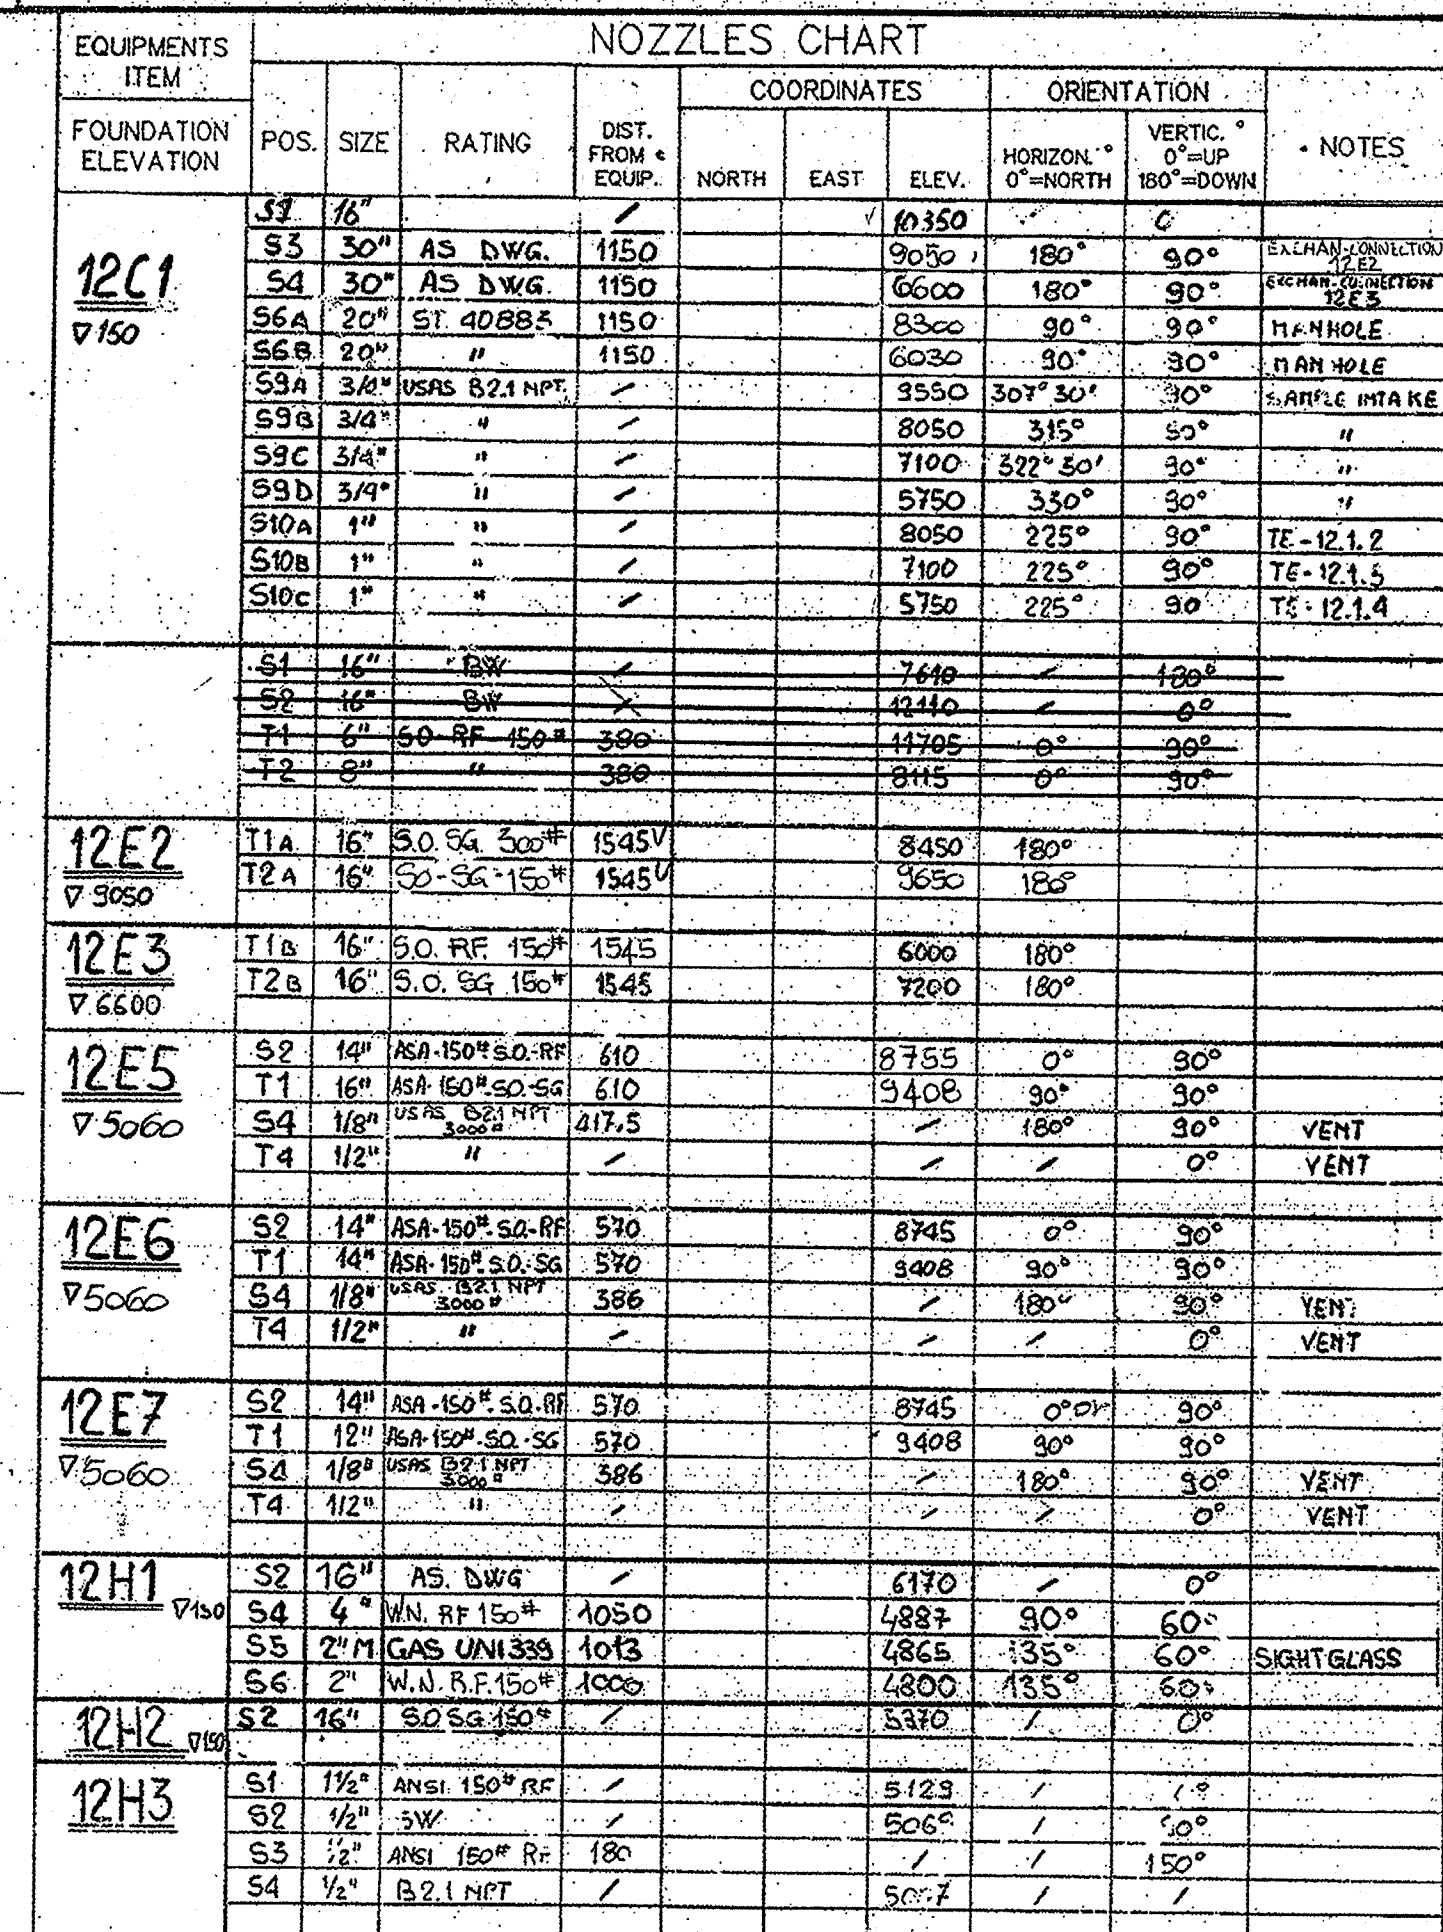 NOZZLES CHART
EQUIPMENTS ITEM
FOUNDATION ELEVATION
POS. SIZE RATING DIST. FROM EQUIP. COORDINATES NORTH EAST ELEV. ORIENTATION HORIZON.° 0°=NORTH VERTIC.° 0°=UP 180°=DOWN NOTES
12C1
▽150
S1 16" / 10350
S3 30" AS DWG. 1150 9050 180° 90° EXCHAN-CONNECTION 12E2
S4 30" AS DWG. 1150 6600 180° 90° EXCHAN-CONNECTION 12E3
S6A 20" ST. 40883 1150 8300 90° 90° MANHOLE
S6B 20" " 1150 6030 90° 90° MANHOLE
S9A 3/4" USAS B2.1 NPT. / 9550 307° 30' 90° SAMPLE INTAKE
S9B 3/4" " / 8050 315° 90° "
S9C 3/4" " / 7100 322° 30' 90° "
S9D 3/4" " / 5750 330° 90° "
S10A 1" " / 8050 225° 90° TE-12.1.2
S10B 1" " / 7100 225° 90° TE-12.1.3
S10C 1" " / 5750 225° 90 TE-12.1.4
S1 16" BW / 7610 / 180°
S2 16" BW / 12110 / 0°
T1 6" SO-RF-150# 380 11705 0° 90°
T2 8" " 380 8115 0° 90°
12E2
▽9050
T1A 16" S.O. SG. 300# 1545V 8450 180°
T2A 16" SO-SG-150# 1545V 9650 180°
12E3
▽6600
T1B 16" S.O. RF. 150# 1545 6000 180°
T2B 16" S.O. SG 150# 1545 7200 180°
12E5
▽5060
S2 14" ASA-150#.S.O.-RF 610 8755 0° 90°
T1 16" ASA-150#.SO-SG 610 9408 90° 90°
S4 1/8" USAS B2.1 NPT 3000# 417.5 / 180° 90° VENT
T4 1/2" " / / / 0° VENT
12E6
▽5060
S2 14" ASA-150#.S.O.-RF 570 8745 0° 90°
T1 14" ASA-150#.S.O.-SG 570 9408 90° 90°
S4 1/8" USAS B2.1 NPT 3000# 386 / 180° 90° VENT
T4 1/2" " / / / 0° VENT
12E7
▽5060
S2 14" ASA-150#.S.O.RF 570 8745 0° 90°
T1 12" ASA-150#.SO.-SG 570 9408 90° 90°
S4 1/8" USAS B2.1 NPT 3000# 386 / 180° 90° VENT
T4 1/2" " / / / 0° VENT
12H1 ▽150
S2 16" AS. DWG / 6170 / 0°
S4 4" W.N. RF 150# 1050 4887 90° 60°
S5 2"M GAS UNI 339 1013 4865 135° 60° SIGHT GLASS
S6 2" W.N. R.F. 150# 1000 4800 135° 60°
12H2 ▽150
S2 16" S.O SG 150# / 5370 / 0°
12H3
S1 1 1/2" ANSI 150# RF / 5129 /
S2 1/2" SW / /
S3 ANSI 150# RF 180 / / 150°
S4 1/2" B2.1 NPT / / /